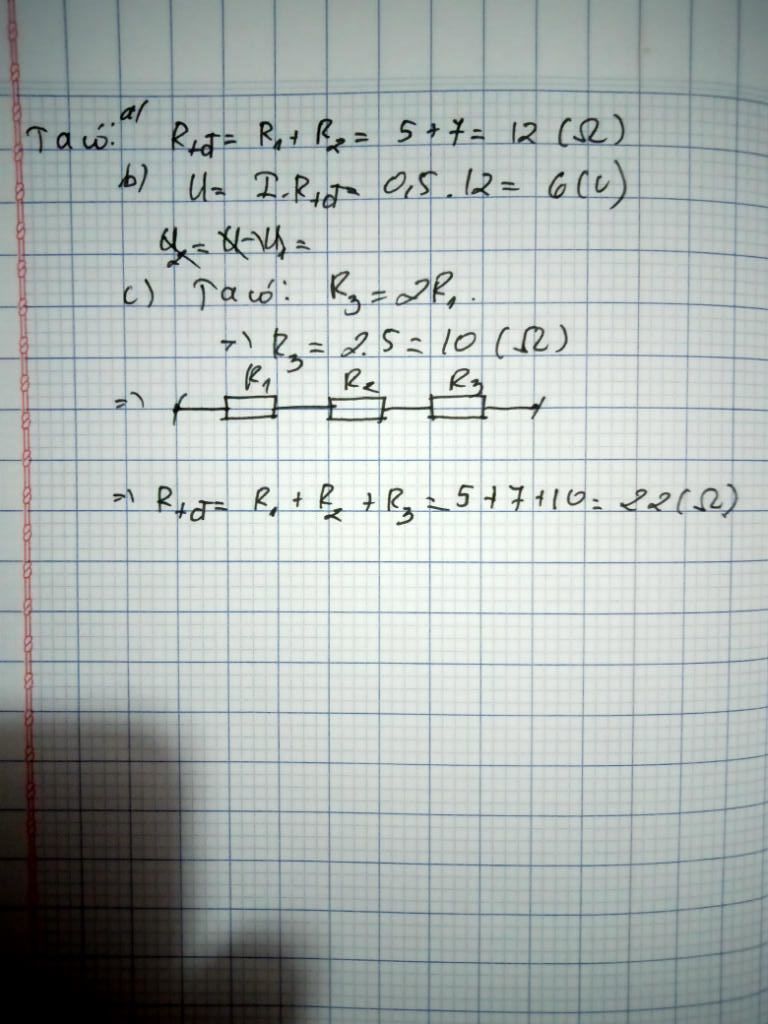 Ta có: a/ Rtđ = R1 + R2 = 5 + 7 = 12 (Ω)
b) U = I.Rtđ = 0,5 . 12 = 6 (V)
U2 = U - U1 =
c) Ta có: R3 = 2R1.
=> R3 = 2.5 = 10 (Ω)
R1 R2 R3
=>
=> Rtđ = R1 + R2 + R3 = 5 + 7 + 10 = 22 (Ω)